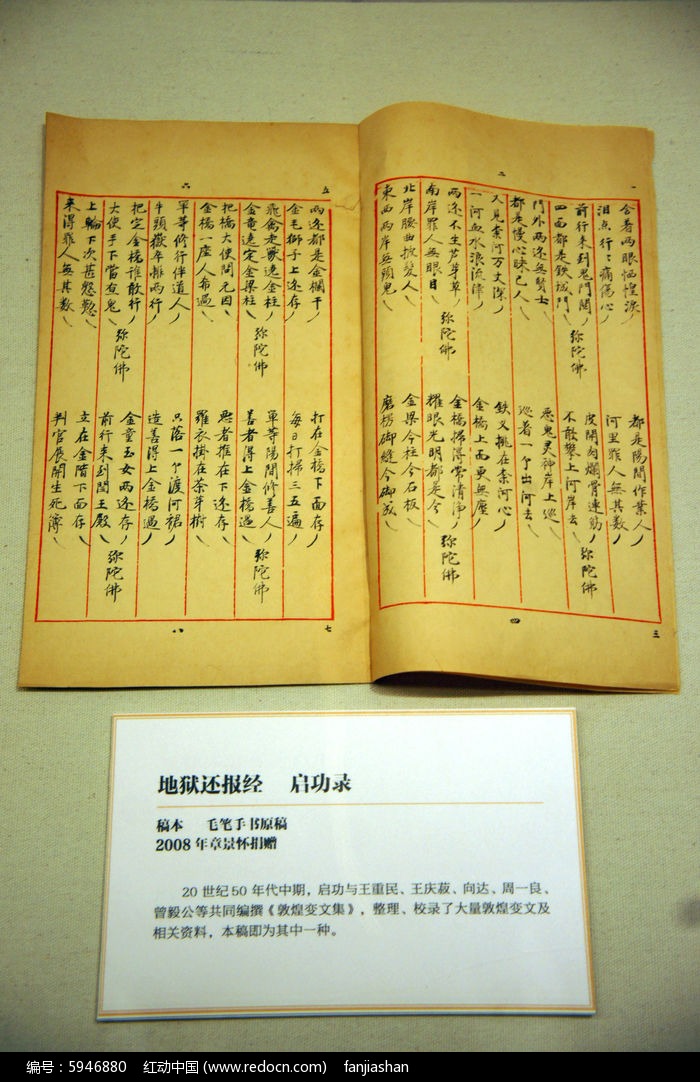 一
二
含着两眼恓惶淚
泪点行々痛傷心
前行来到鬼門関 弥陀佛
四面都是鉄城門
門外两边無賢士
都是慢心昧己人
又見柰河万丈深
一河血水浪流津
两边不生芦芽草 弥陀佛
南岸罪人無眼目
北岸腰曲披髪人
東西两岸無頭鬼
都是陽間作業人
河里罪人無其数
皮開肉爛骨連筋 弥陀佛
不敢攀上河岸去
悪鬼灵神岸上巡
巡着一个出河去
鉄叉挑在柰河心
金橋上面更無塵
金橋掃得常清净 弥陀佛
耀眼光明都是金
金梁金柱金石板
磨楞御縫金御成
三
四
五
六
两边都是金欄干
金毛獅子上边存
飛禽走獸遶金柱 弥陀佛
金竜遶定金梁柱
把橋大使問元因
金橋一座人希過
單等修行伴道人
牛頭獄卒排两行
把定金橋誰敢行
大使手下當直鬼 弥陀佛
上輪下次甚慇懃
来得罪人無其数
打在金橋下面存
每日打掃三五遍
單等陽間修善人 弥陀佛
善者得上金橋過
悪者推在下边存
羅衣掛在荼芽樹
只落一个渡河裙
造善得上金橋過
金童玉女两边存
前行来到閻王殿 弥陀佛
立在金階下面存
判官展開生死簿
七
八
地狱还报经 启功录
稿本 毛笔手书原稿
2008年章景怀捐赠
20世纪50年代中期，启功与王重民、王庆菽、向达、周一良、
曾毅公等共同编撰《敦煌变文集》，整理、校录了大量敦煌变文及
相关资料，本稿即为其中一种。
编号：5946880 红动中国 (www.redocn.com) fanjiashan